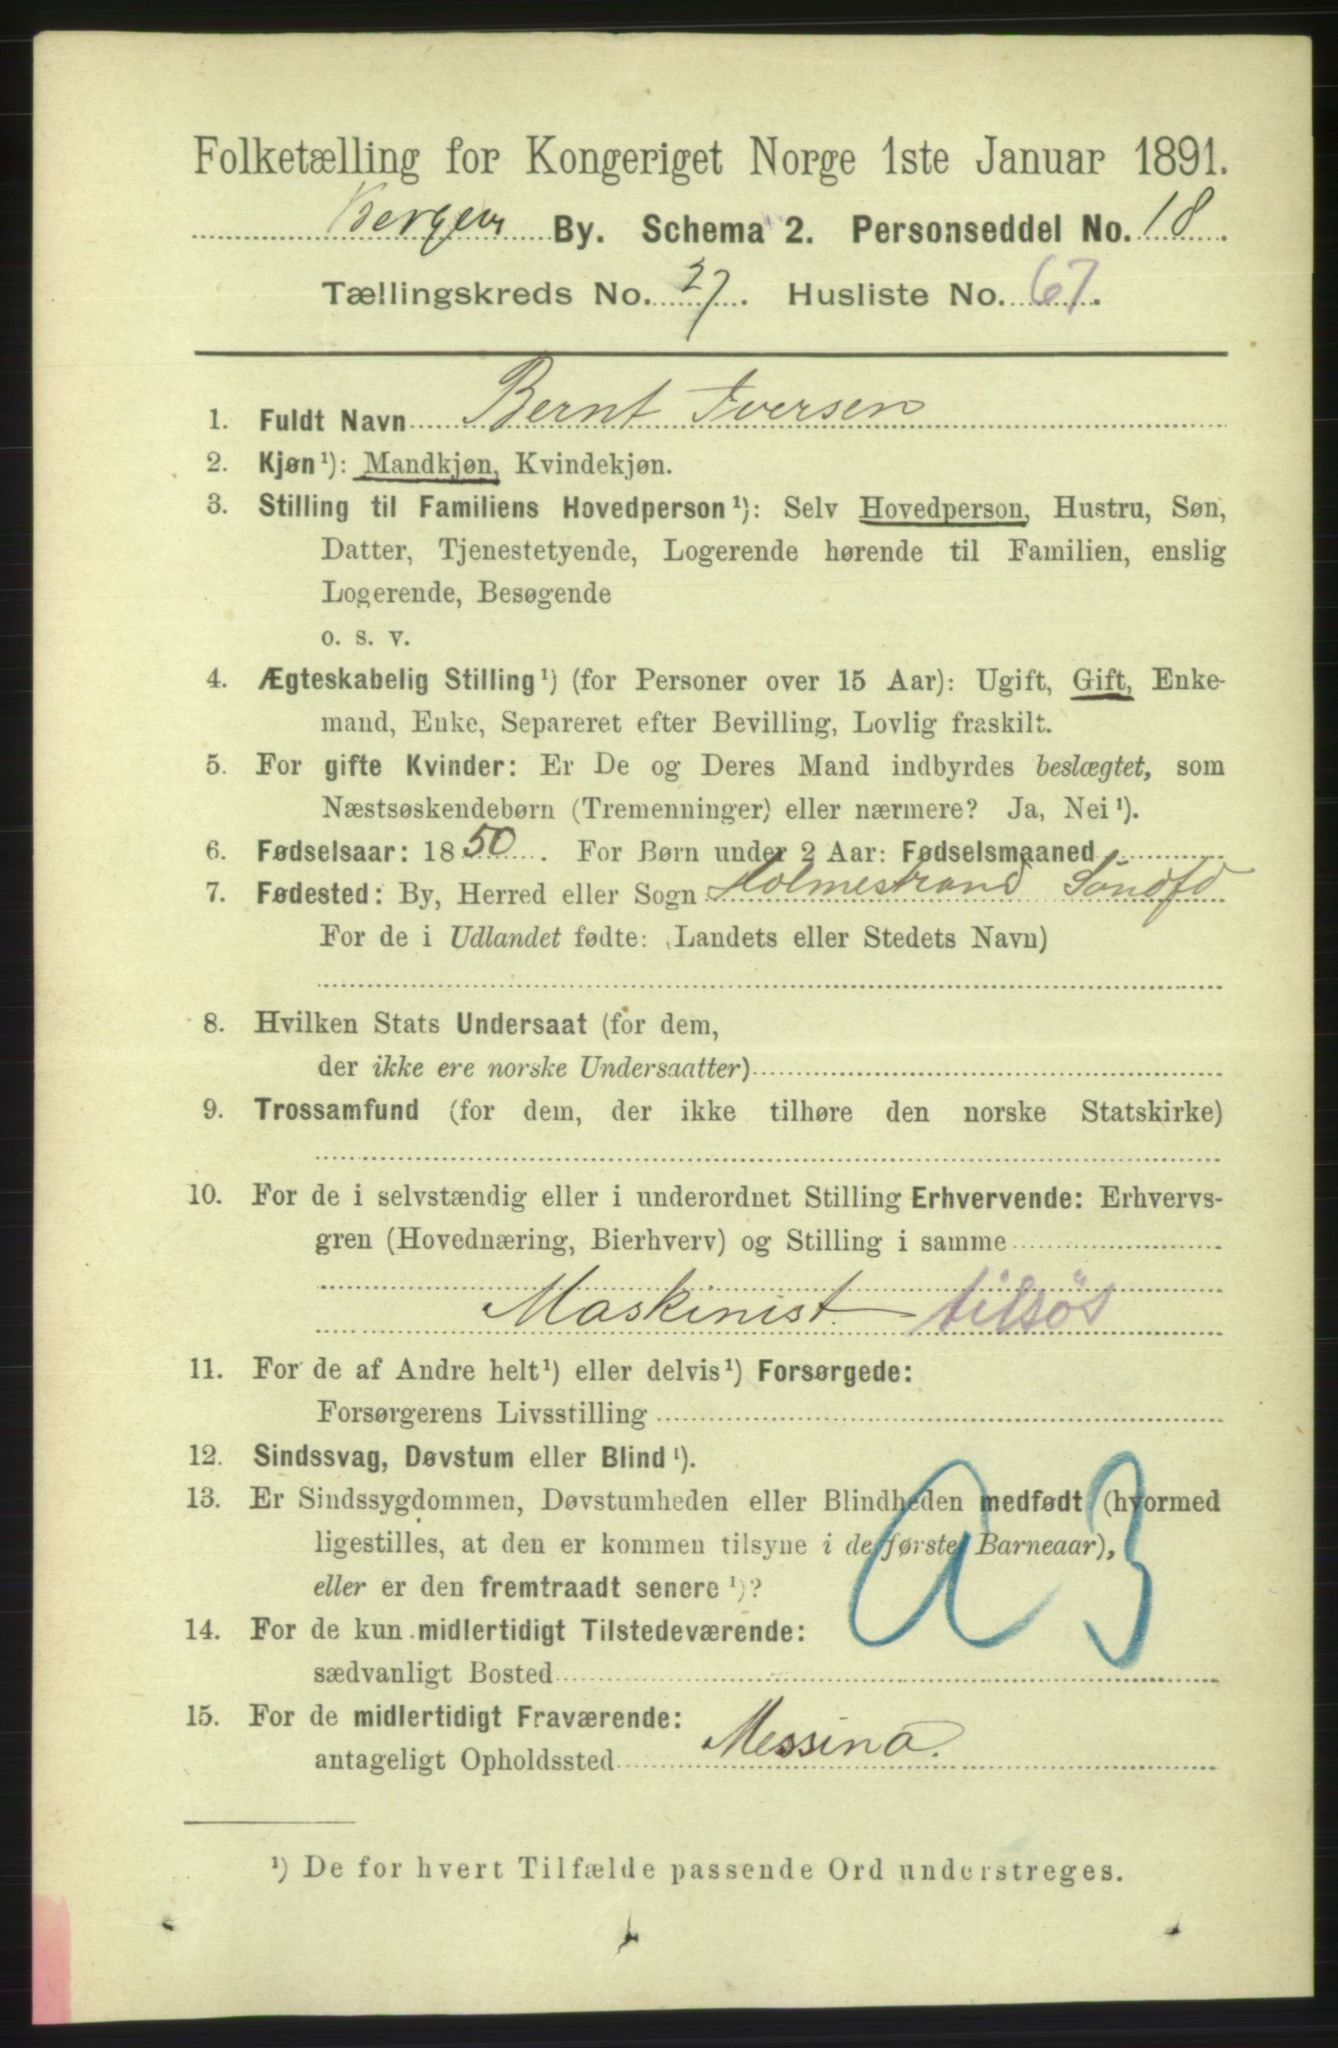 Folketælling for Kongeriget Norge 1ste Januar 1891.
Bergen By. Schema 2. Personseddel No. 18.
Tællingskreds No. 27. Husliste No. 67.
1. Fuldt Navn Bernt Iversen
2. Kjøn¹): Mandkjøn, Kvindekjøn.
3. Stilling til Familiens Hovedperson¹): Selv Hovedperson, Hustru, Søn,
Datter, Tjenestetyende, Logerende hørende til Familien, enslig
Logerende, Besøgende
o. s. v.
4. Ægteskabelig Stilling¹) (for Personer over 15 Aar): Ugift, Gift, Enke-
mand, Enke, Separeret efter Bevilling, Lovlig fraskilt.
5. For gifte Kvinder: Er De og Deres Mand indbyrdes beslægtet, som
Næstsøskendebørn (Tremenninger) eller nærmere? Ja, Nei¹).
6. Fødselsaar: 1850. For Børn under 2 Aar: Fødselsmaaned
7. Fødested: By, Herred eller Sogn Holmestrand Söndfd
For de i Udlandet fødte: (Landets eller Stedets Navn)
8. Hvilken Stats Undersaat (for dem,
der ikke ere norske Undersaatter)
9. Trossamfund (for dem, der ikke tilhøre den norske Statskirke)
10. For de i selvstændig eller i underordnet Stilling Erhvervende: Erhvervs-
gren (Hovednæring, Bierhverv) og Stilling i samme
Maskinist tilsøs
11. For de af Andre helt¹) eller delvis¹) Forsørgede:
Forsørgerens Livsstilling
12. Sindssvag, Døvstum eller Blind¹).
13. Er Sindssygdommen, Døvstumheden eller Blindheden medfødt (hvormed
ligestilles, at den er kommen tilsyne i de første Barneaar),
eller er den fremtraadt senere¹)?
a 3
14. For de kun midlertidigt Tilstedeværende:
sædvanligt Bosted
15. For de midlertidigt Fraværende:
antageligt Opholdssted Messina.
¹) De for hvert Tilfælde passende Ord understreges.